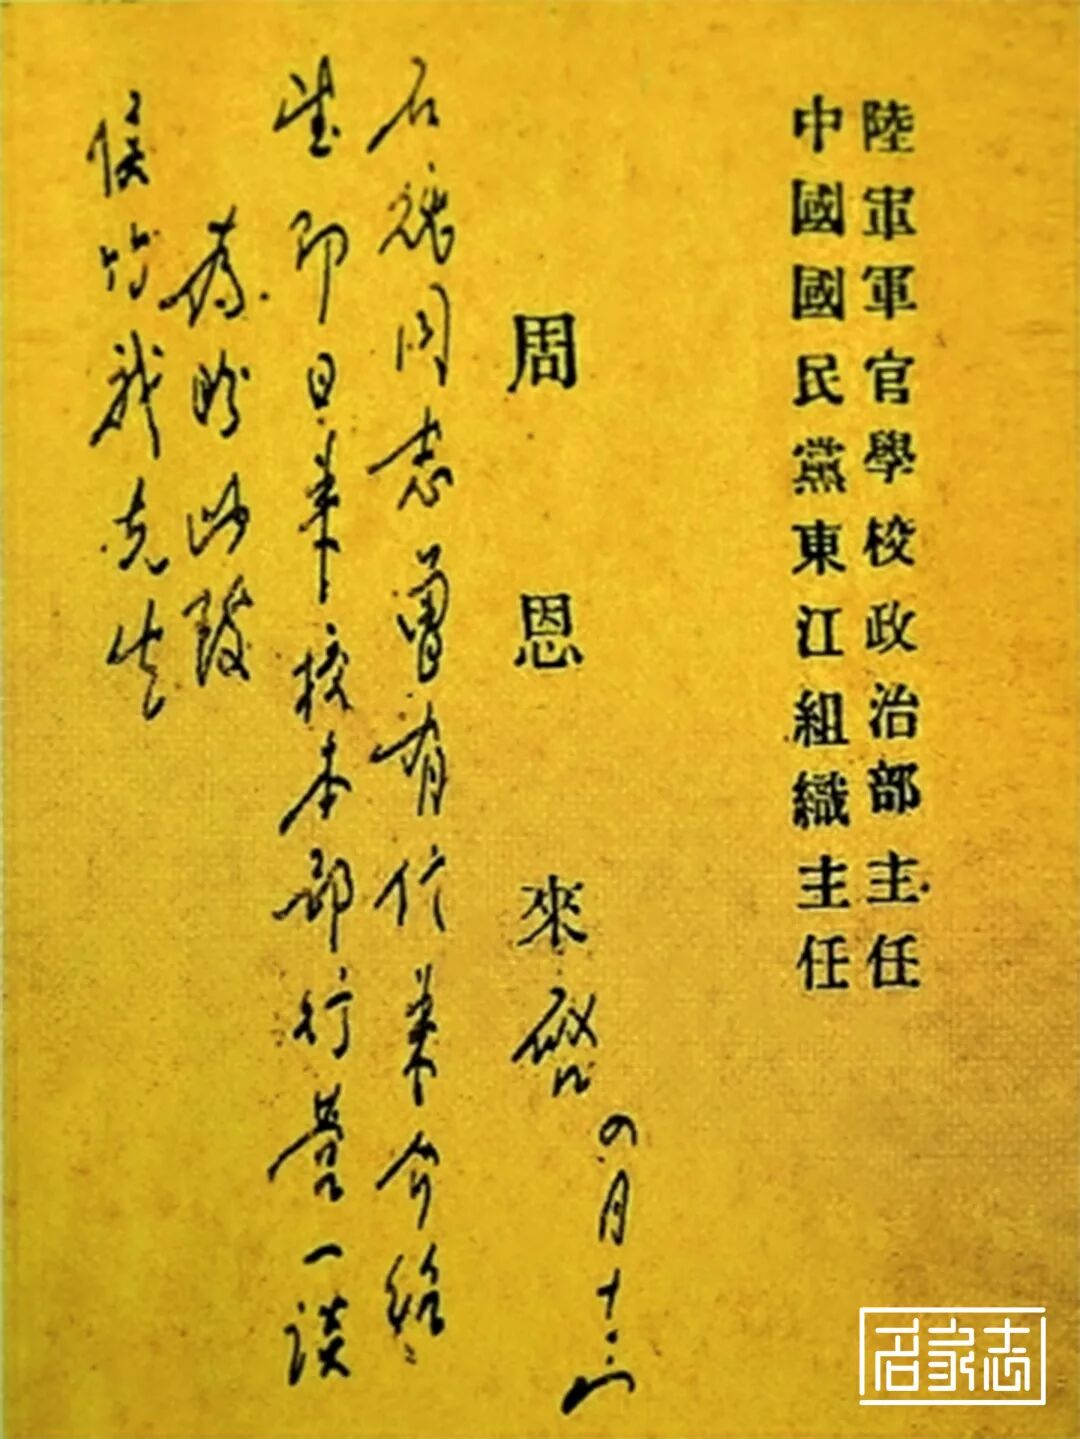 陸軍軍官學校政治部主任
中國國民黨東江組織主任
周恩來啓
四月十二
石魂同志曾有信來介紹
望即日來校本部行營一談
為盼此致
侯竹我先生
名家志